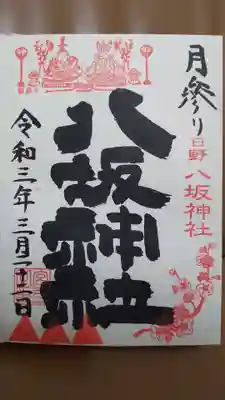 月参り 日野 八坂神社
八坂神社
令和三年三月十三日